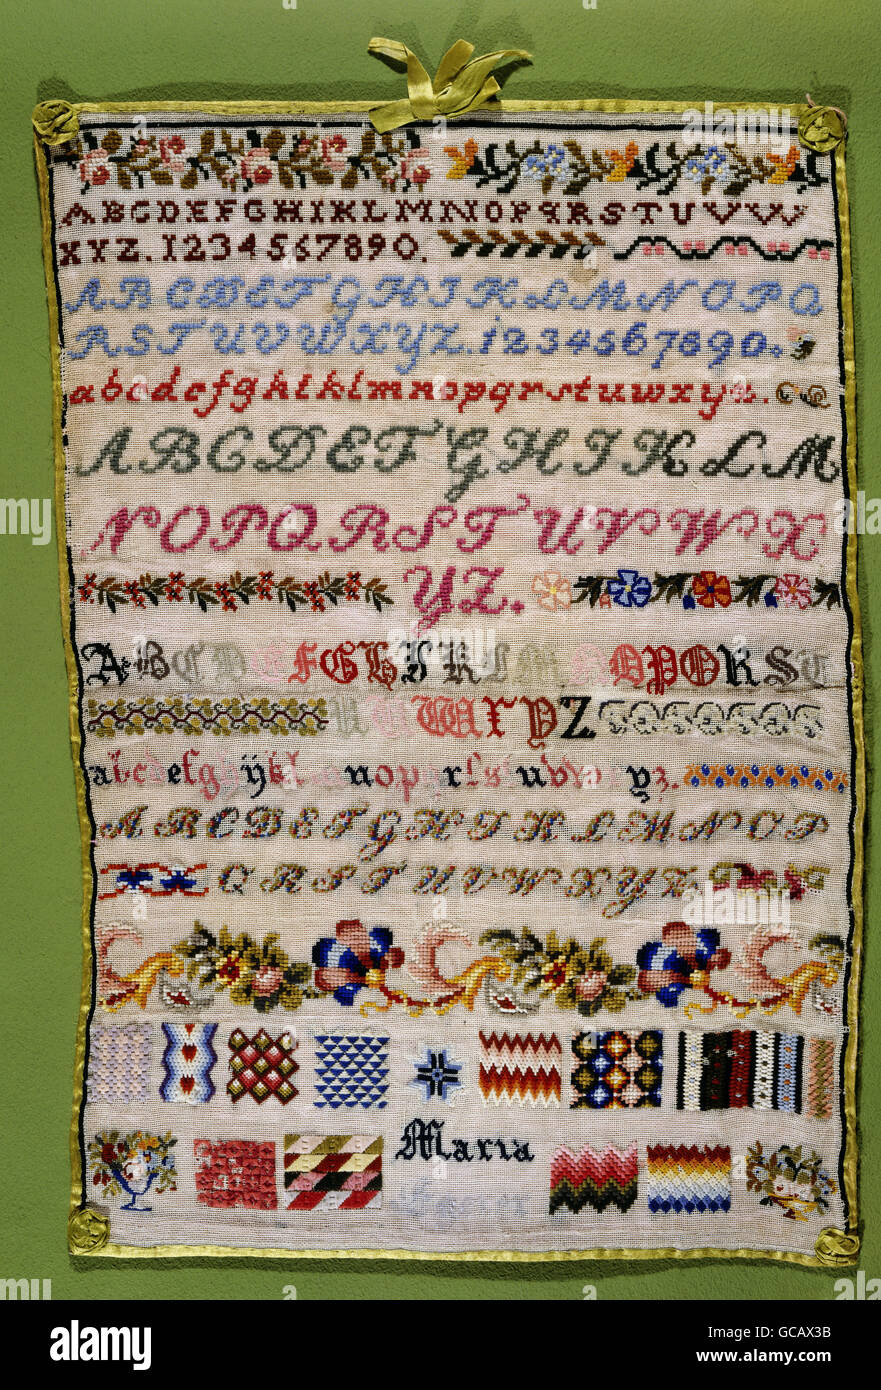 ABCDEFGHIKLMNOPQRSTUVW
XYZ.1234567890.
ABCDEFGHIKLMNOPQ
RSTUVWXYZ.1234567890.
abcdefghiklmnopqrstuwxyz.
ABCDEFGHIKLM
NOPQRSTUVWX
YZ.
ABCDEFGHIKLMNOPQRST
UVWXYZ
ABCDEFGHIKLMNOP
QRSTUVWXYZ
Maria
alamy stock photo
GCAX3B
www.alamy.com